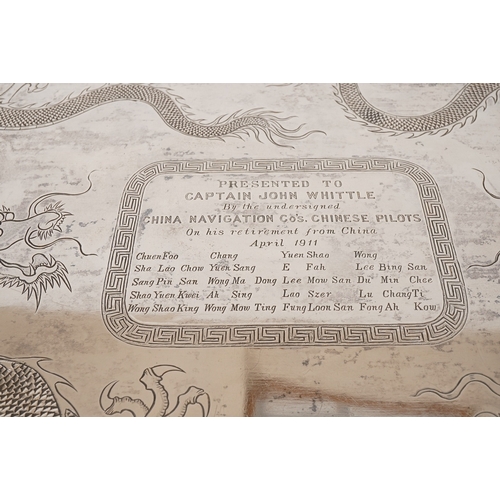 PRESENTED TO
CAPTAIN JOHN WHITTLE
By the undersigned
CHINA NAVIGATION Co's. CHINESE PILOTS
On his retirement from China
April 1911
Chuen Foo Chang Yuen Shao Wong
Sha Lao Chow Yuen Sang E Fah Lee Bing San
Sang Pin San Wong Ma Dong Lee Mow San Du Min Chee
Shao Yuen Kwei Ah Sing Lao Szer Lu Chang Ti
Wong Shao King Wong Mow Ting Fung Loon San Fong Ah Kow